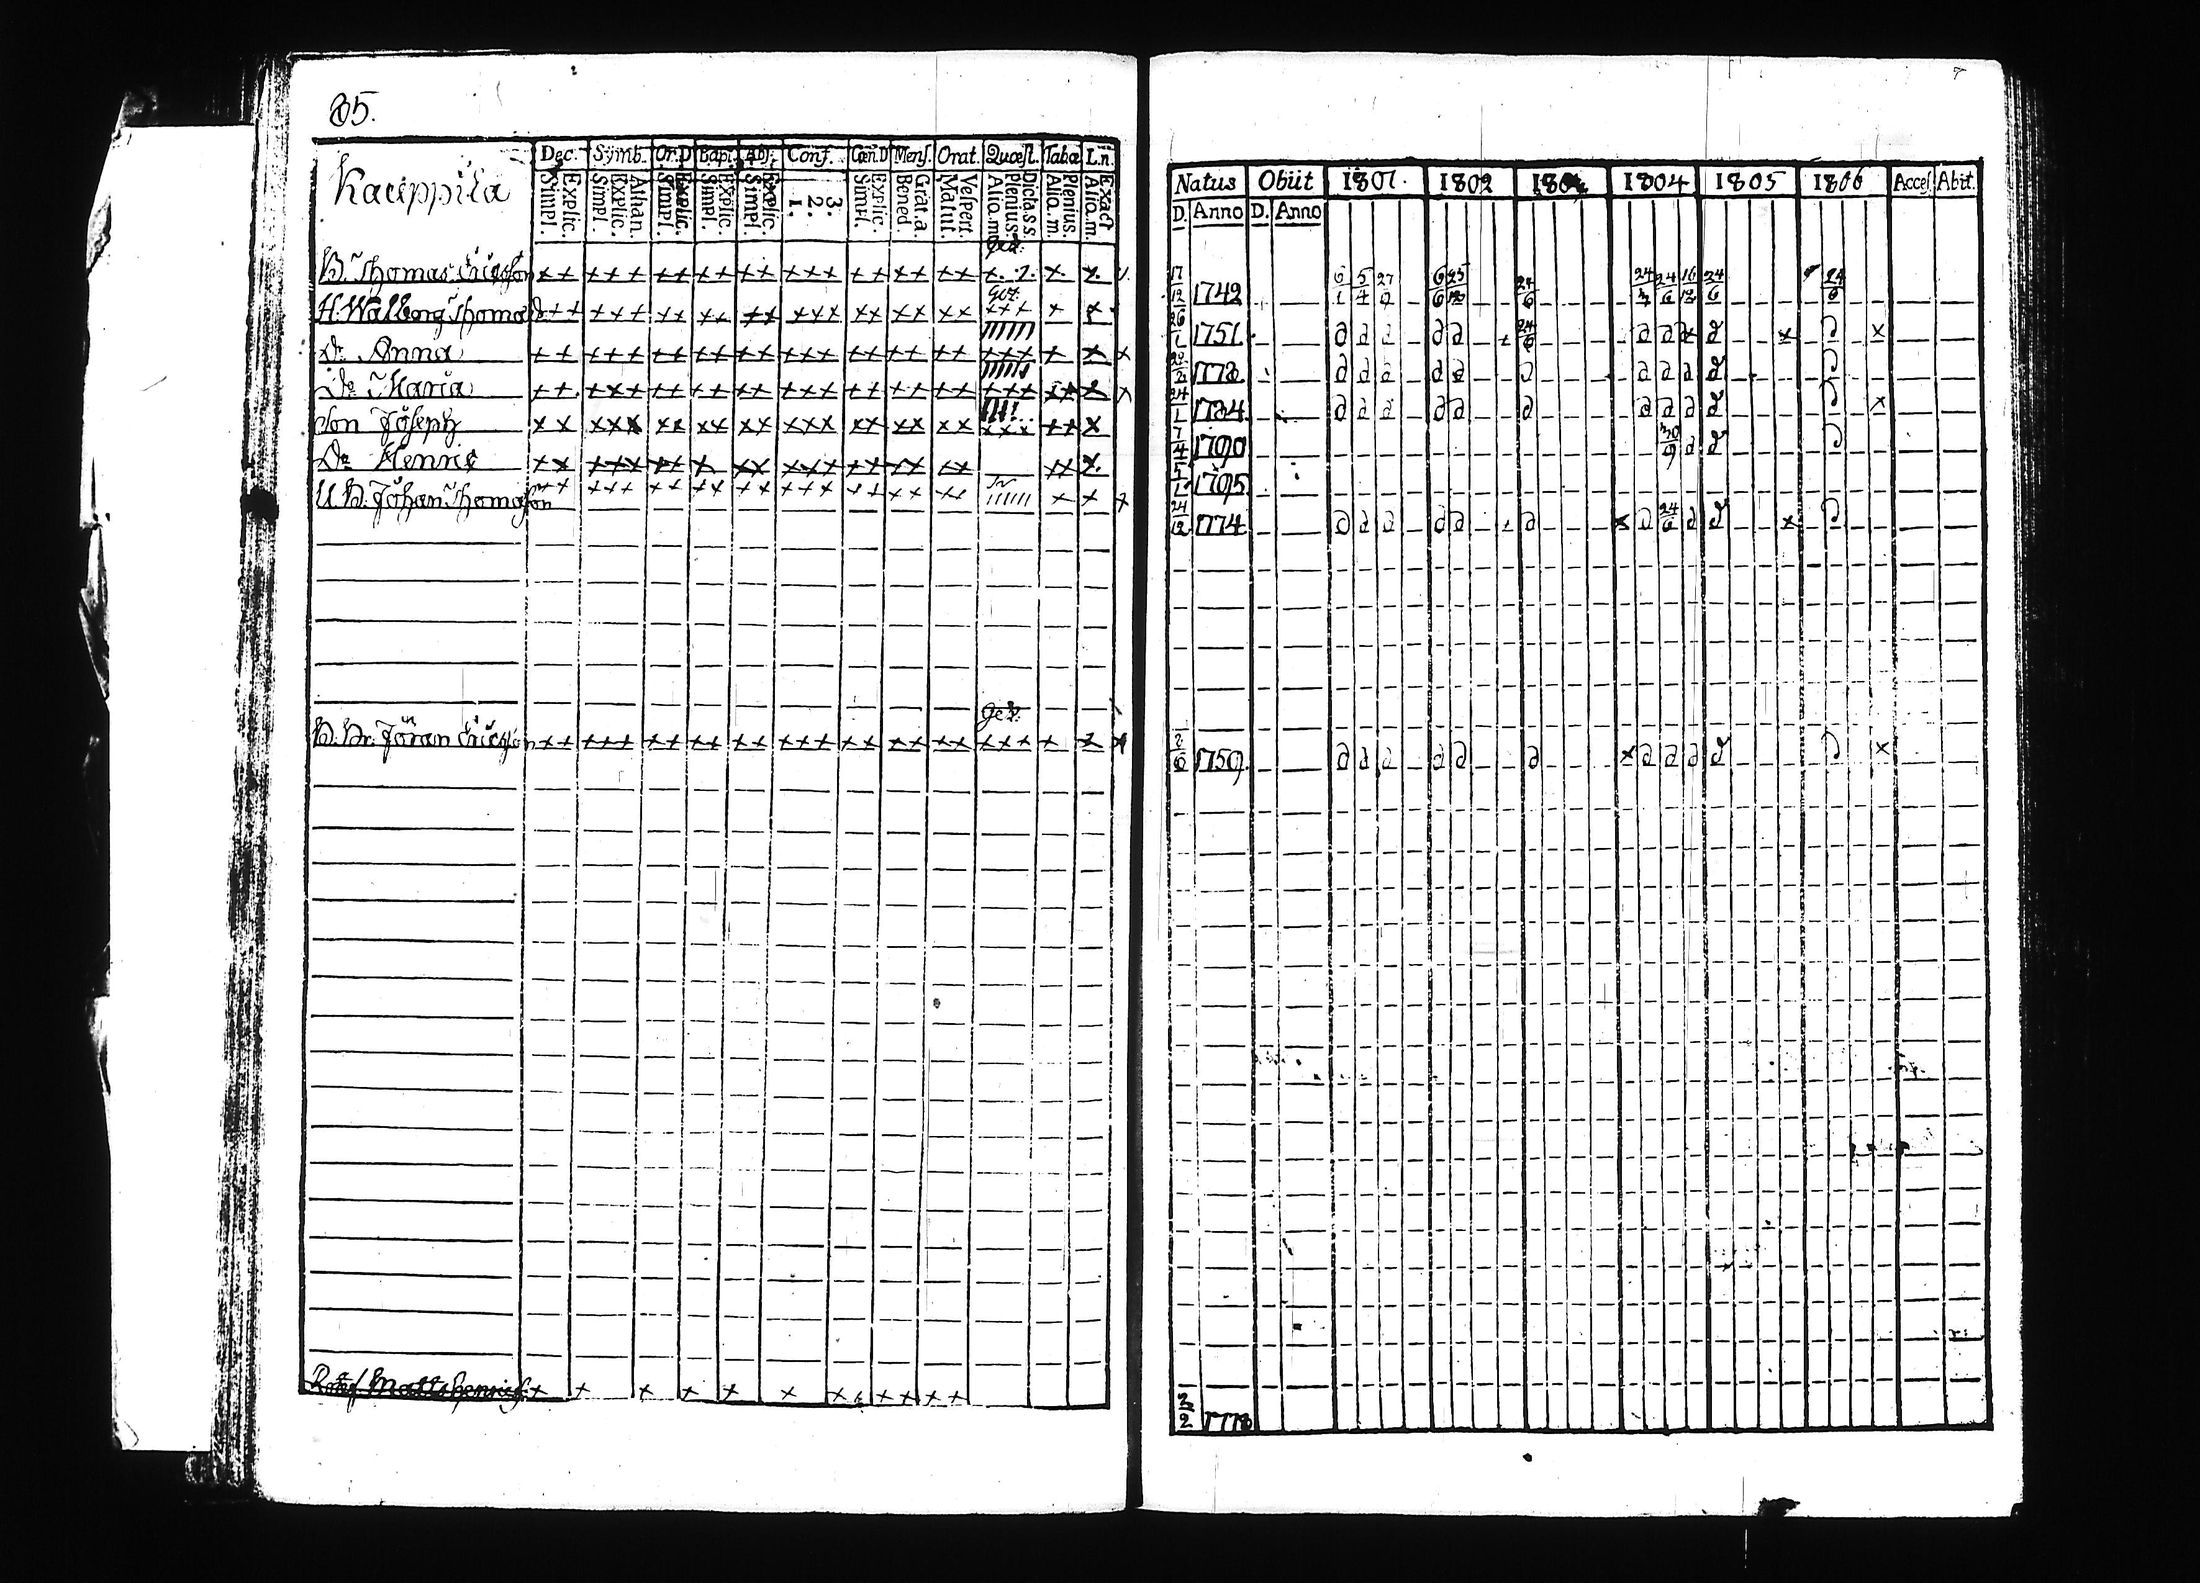 85.
Kauppila
Dec. Symb. Or.D Bapt. Abs. Conf. Cœn.D Mens. Orat. Quæst. Taba L.n.
Simpl. Explic. Simpl. Explic. Athan. Simpl. Explic. Simpl. Explic. Simpl. Explic. 1. 2. 3. Simpl. Explic. Bened. Grat.a Matut. Vespert. Alio.m. Plenius. Dicta.s.s. Alio.m. Plenius. Alio.m. Exact
B. Thomas Ericsson ++ +++ ++ ++ ++ +++ ++ ++ ++
H. Walborg Thomæ D ++ +++ ++ ++ ++ +++ ++ ++ ++ +++ + +
Dr. Anna ++ +++ ++ ++ ++ +++ ++ ++ ++ +++ + + +
Dr. Maria ++ +++ ++ ++ ++ +++ ++ ++ ++ +++ ++ + +
Son Joseph ++ +++ ++ ++ ++ +++ ++ ++ ++ +++ ++ +
Do Henric ++ +++ ++ + ++ +++ ++ ++ ++ ++ +
U. B. Johan Thomasson ++ +++ ++ ++ ++ +++ ++ ++ ++ + + +
B. Br. Jöran Ericsson ++ +++ ++ ++ ++ +++ ++ ++ ++ +++ + + +
Matts + + + + + + + + + + + +
Natus Obiit 1801. 1802 1804 1805 1806 Acces. Abit.
D. Anno D. Anno
17/12 1742 6/1 5/4 27/9 6/6 25/12 24/6 24/6 16/12 24/6 24/6
26/1 1751. 24/6
1778
24/1 1784
7/4 1790
5/1 1795
24/12 1774 24/6
2/6 1759.
3/2 1778